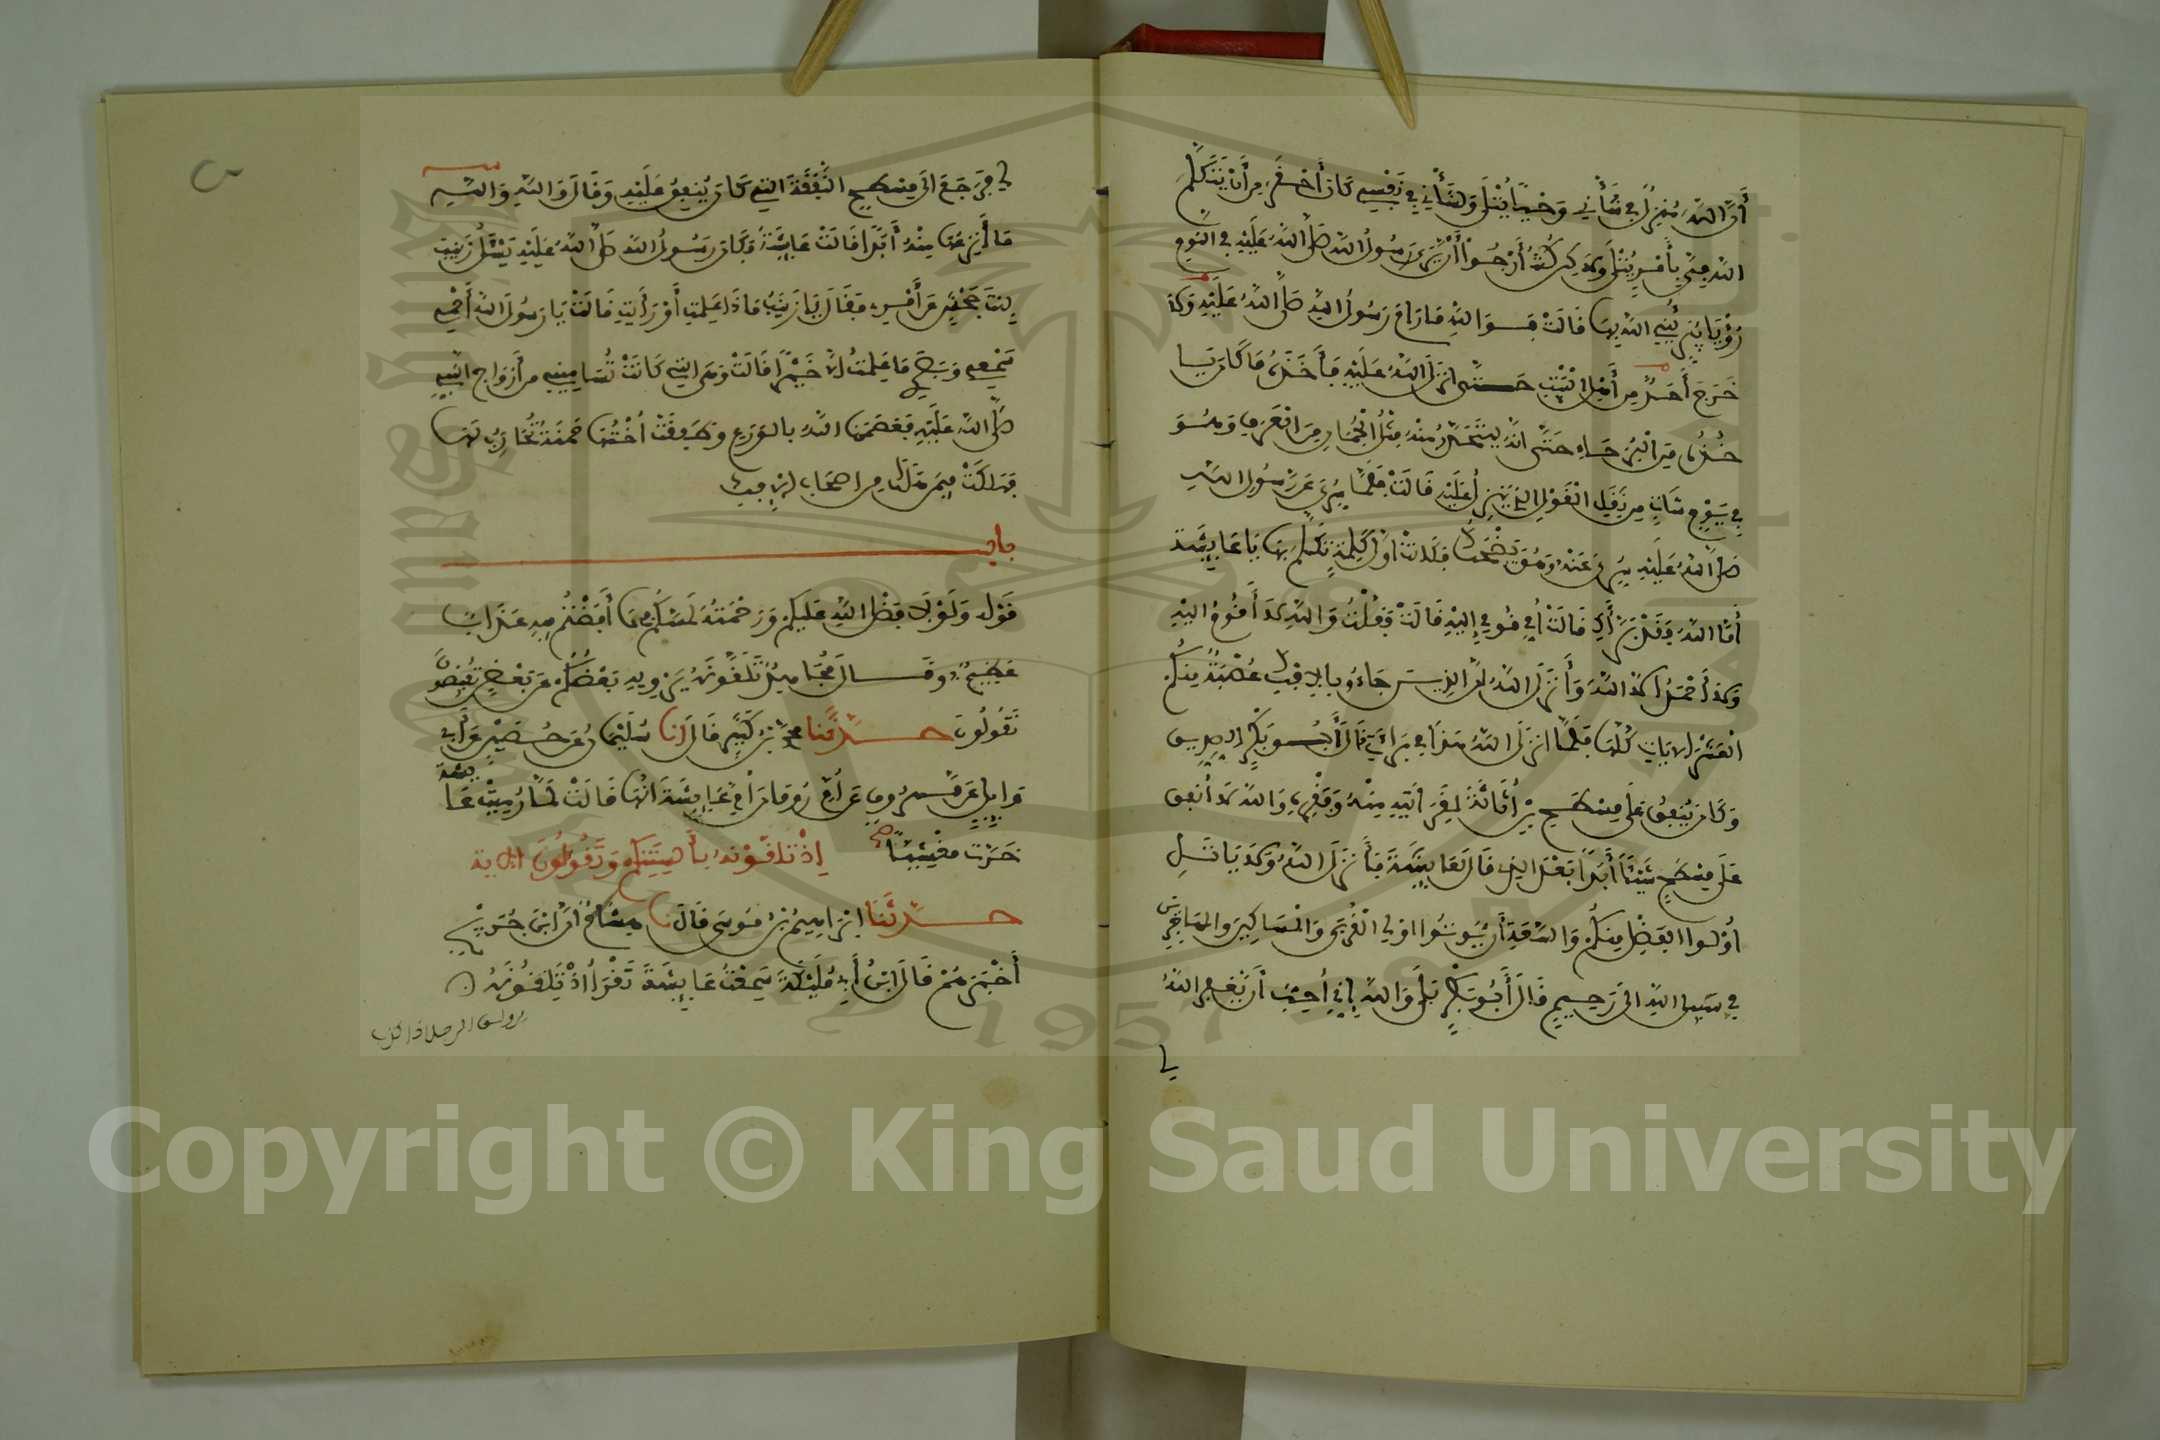 أن الله منزل في شأني وحيا يتلى ولشأني في نفسي كان أحقر من أن يتكلم
الله في بأمر يتلى ولكن كنت أرجوا أن يرى رسول الله صلى الله عليه في النوم
رؤيا يبرئني الله بها قالت فوالله ما رام رسول الله صلى الله عليه ولا
خرج أحد من أهل البيت حتى انزل الله عليه فأخذه ما كان يا
خذه من البرحاء حتى انه ليتحدر منه مثل الجمان من العرق وهو
في يوم شات من ثقل القول الذي ينزل عليه قالت فلما سري عن رسول الله
صلى الله عليه سري عنه وهو يضحك فكانت اول كلمة تكلم بها يا عايشة
أما الله فقد برأك قالت أمي قومي إليه قالت فقلت والله لا أقوم اليه
ولا أحمد الا الله وأنزل الله ان الذين جاءو بالافك عصبة منكم
العشر الايات كلها فلما انزل الله هذا في براءتي قال أبو بكر الصديق
وكان ينفق على مسطح بن أثاثة لقرابته منه وفقره والله لا أنفق
على مسطح شيئا أبدا بعد الذي قال لعايشة فأنزل الله ولا ياتل
أولوا الفضل منكم والسعة أن يوتوا اولي القربى والمساكين والمهاجرين
في سبيل الله الى رحيم قال أبو بكر بلى والله إني أحب أن يغفر الله
لي
لي فرجع الى مسطح النفقة التي كان ينفق عليه وقال والله والله
ما أنزعها منه أبدا قالت عايشة وكان رسول الله صلى الله عليه يسئل زينب
بنت جحش عن أمري فقال يا زينب ماذا علمت أو رأيت قالت يا رسول الله أحمي
سمعي وبصري ما علمت الا خيرا قالت وهي التي كانت تساميني من أزواج النبي
صلى الله عليه فعصمها الله بالورع وطفقت أختها حمنة تحارب لها
فهلكت فيمن هلك من اصحاب الافك
باب
قوله ولولا فضل الله عليكم ورحمته لمسكم فيما أفضتم فيه عذاب
عظيم وقال مجاهد تلقونه يرويه بعضكم عن بعض تفيضون
تقولون حدثنا محمد بن كثير قال انا سليمان عن حصين عن أبي
وايل عن مسروق عن أم رومان أم عايشة انها قالت لما رميت عايشة
خرت مغشيا إذ تلقونه بألسنتكم وتقولون الاية
حدثنا ابراهيم بن موسى قال نا هشام أن ابن جريج
أخبرهم قال ابن أبي مليكة سمعت عايشة تقرأ اذ تلقونه
Copyright © King Saud University
1957